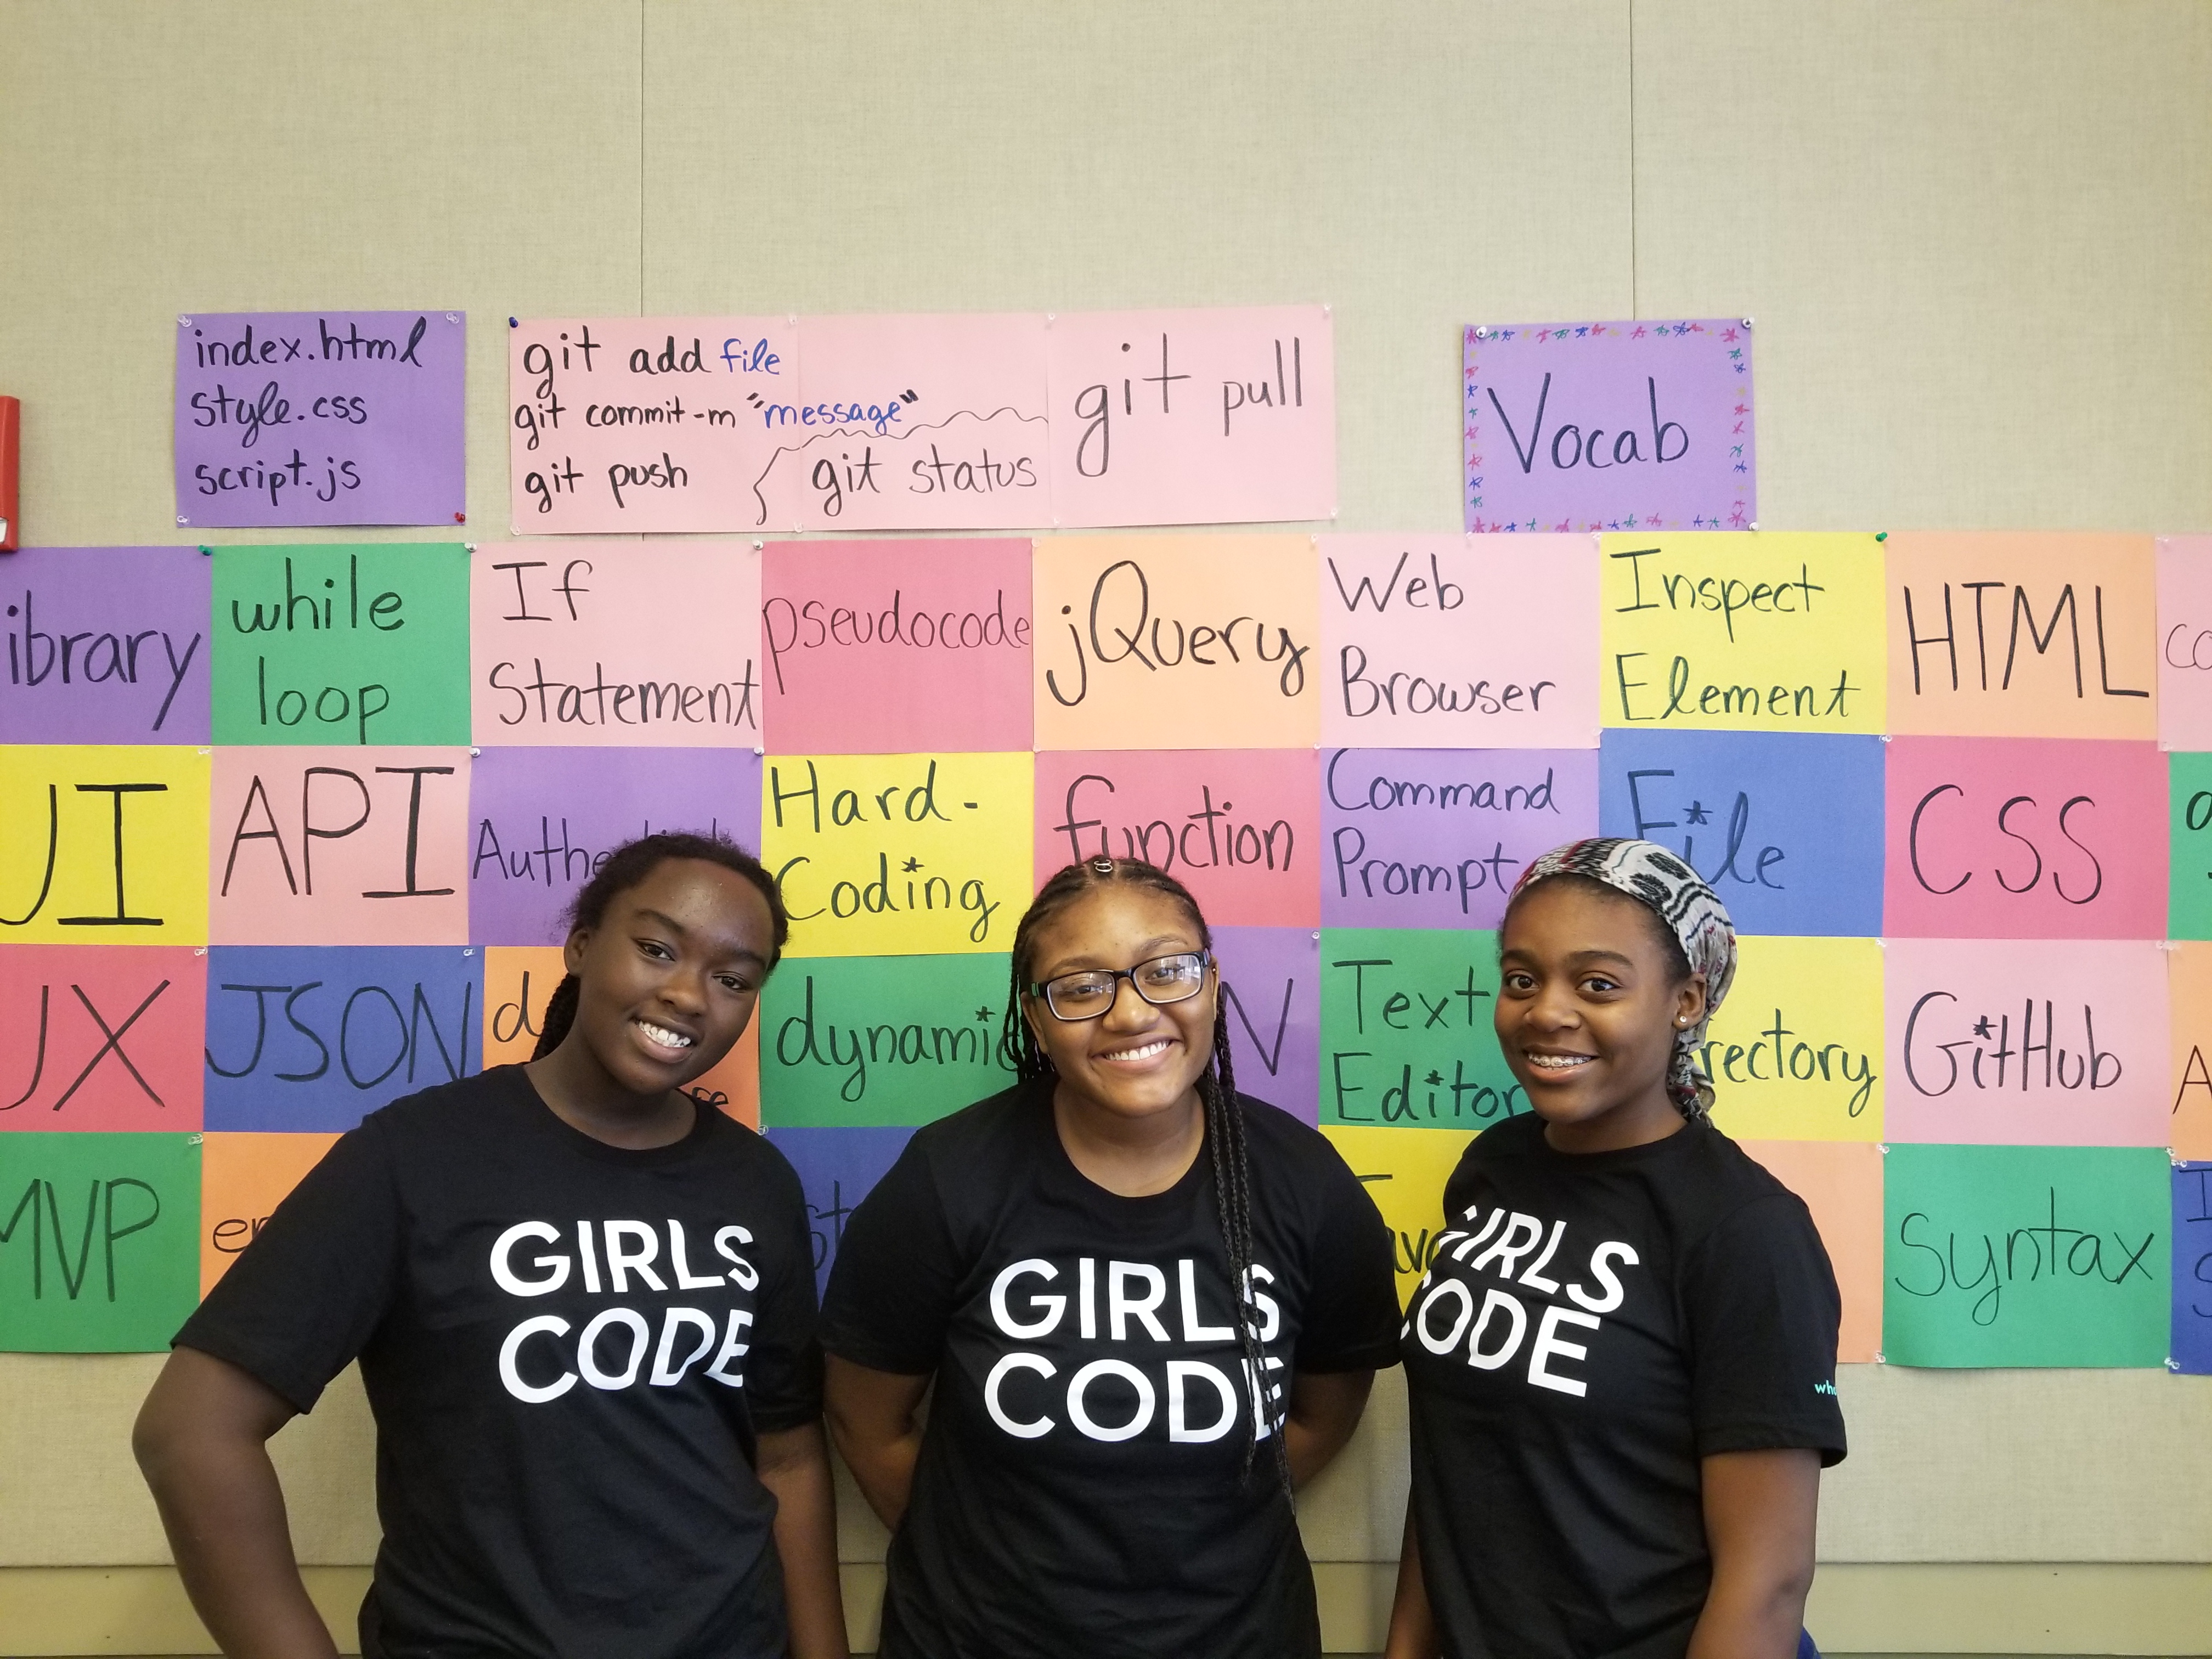 index.html
style.css
script.js
git add file
git commit -m "message"
git push
git status
git pull
Vocab
while
loop
If
Statement
pseudocode
jQuery
Web
Browser
Inspect
Element
HTML
API
Hard-
Coding
function
Command
Prompt
File
CSS
JSON
dynamic
Text
Editor
GitHub
MVP
syntax
GIRLS
CODE
GIRLS
CODE
GIRLS
CODE